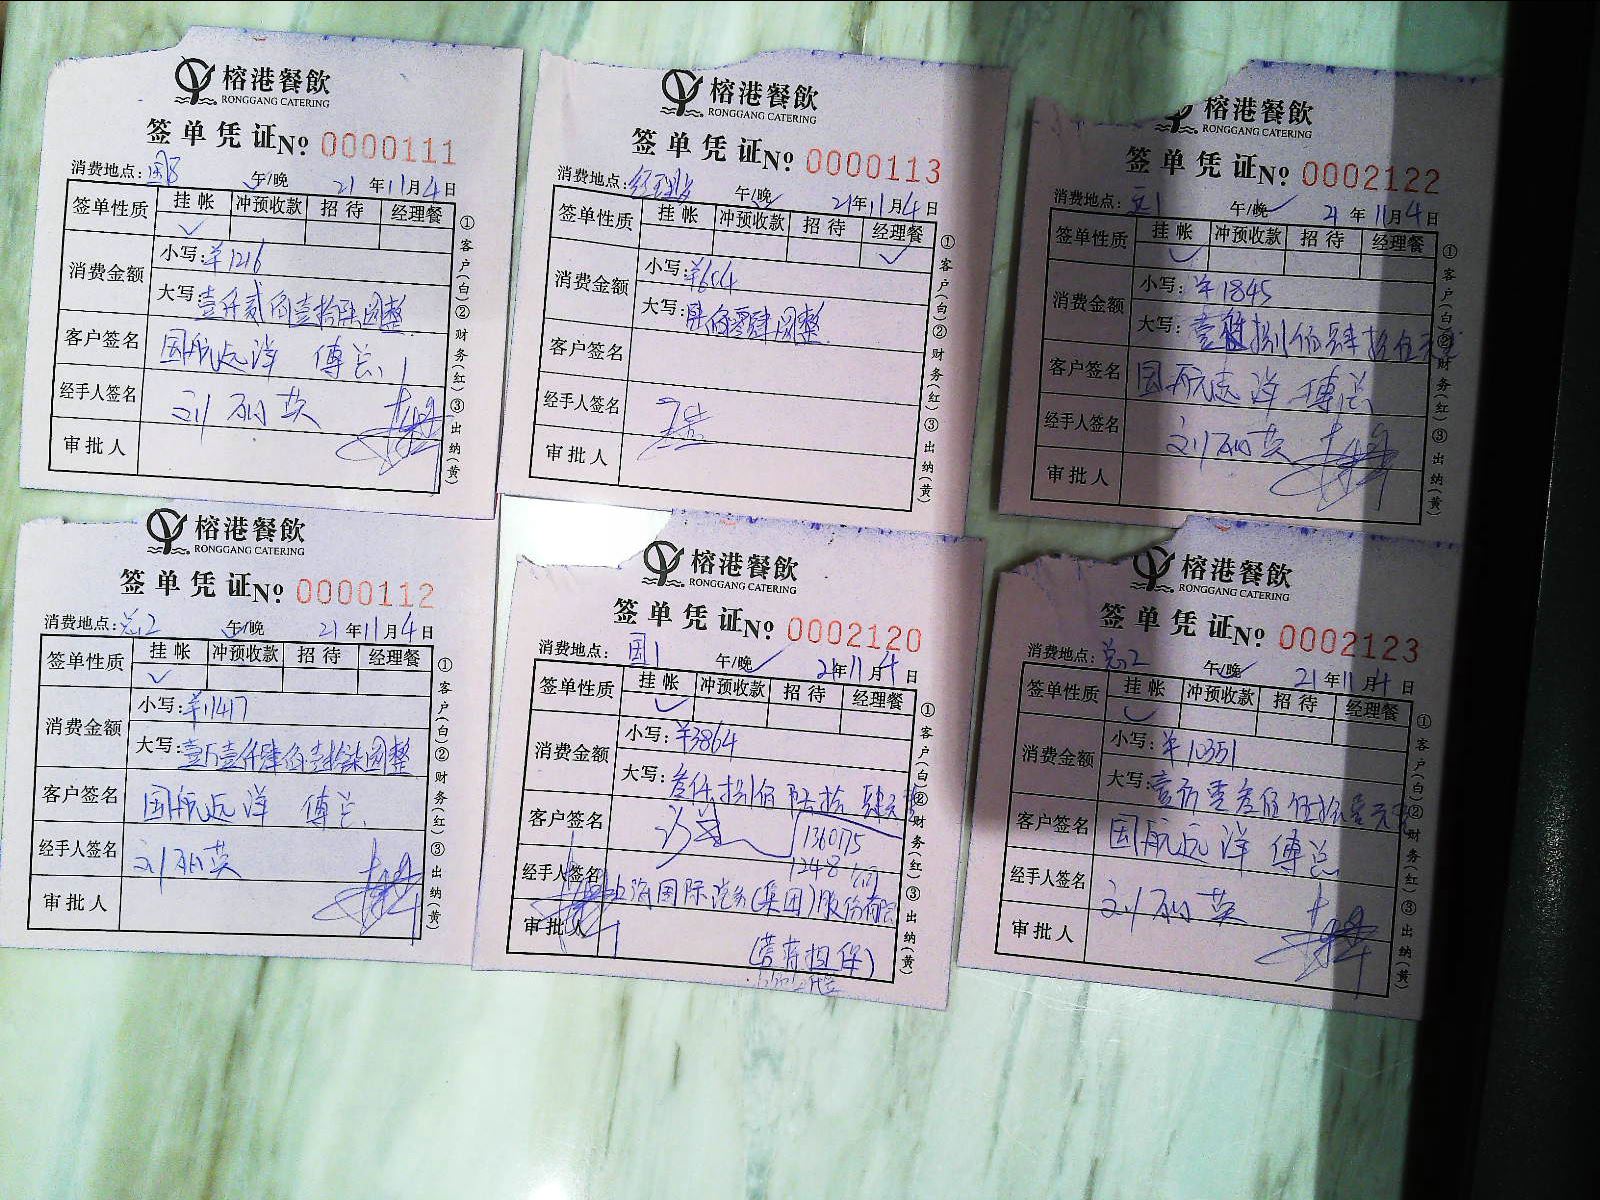 榕港餐飲
RONGGANG CATERING
签单凭证 № 0000111
消费地点: 午/晚 21年11月4日
签单性质 挂帐 冲预收款 招待 经理餐
消费金额 小写:¥1216
大写:壹仟贰佰壹拾陆圆整
客户签名 国航远洋 傅总
经手人签名 刘丽英
审批人
①客户(白)②财务(红)③出纳(黄)
榕港餐飲
RONGGANG CATERING
签单凭证 № 0000113
消费地点: 午/晚 21年11月4日
签单性质 挂帐 冲预收款 招待 经理餐
消费金额 小写:¥604
大写:陆佰零肆圆整
客户签名
经手人签名
审批人
①客户(白)②财务(红)③出纳(黄)
榕港餐飲
RONGGANG CATERING
签单凭证 № 0002122
消费地点: 午/晚 21年11月4日
签单性质 挂帐 冲预收款 招待 经理餐
消费金额 小写:¥1845
大写:壹仟捌佰肆拾伍元
客户签名 国航远洋 傅总
经手人签名 刘丽英
审批人
①客户(白)②财务(红)③出纳(黄)
榕港餐飲
RONGGANG CATERING
签单凭证 № 0000112
消费地点:总2 午/晚 21年11月4日
签单性质 挂帐 冲预收款 招待 经理餐
消费金额 小写:¥11417
大写:壹万壹仟肆佰壹拾柒圆整
客户签名 国航远洋 傅总
经手人签名 刘丽英
审批人
①客户(白)②财务(红)③出纳(黄)
榕港餐飲
RONGGANG CATERING
签单凭证 № 0002120
消费地点: 国1 午/晚 21年11月4日
签单性质 挂帐 冲预收款 招待 经理餐
消费金额 小写:¥3864
大写:叁仟捌佰陆拾肆元整
客户签名 1360175
1248
经手人签名 上海国际 (集团)股份有限公司
审批人
担保)
①客户(白)②财务(红)③出纳(黄)
榕港餐飲
RONGGANG CATERING
签单凭证 № 0002123
消费地点:总2 午/晚 21年11月4日
签单性质 挂帐 冲预收款 招待 经理餐
消费金额 小写:¥10351
大写:壹万零叁佰伍拾壹元
客户签名 国航远洋 傅总
经手人签名 刘丽英
审批人
①客户(白)②财务(红)③出纳(黄)